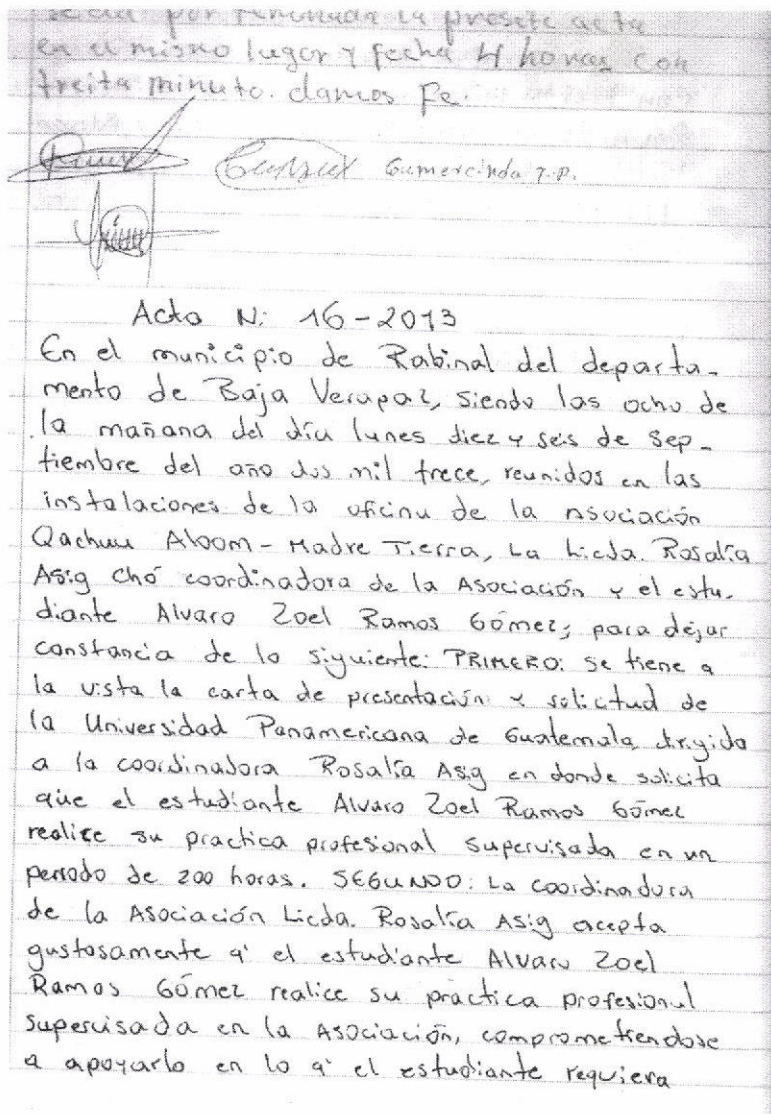 se da por terminada la presete acta
en el mismo lugar y fecha 4 horas con
treita minuto. damos Fe.
Gumercinda T.P.
Acta N: 16-2013
En el municipio de Rabinal del departa-
mento de Baja Verapaz, siendo las ocho de
la mañana del día lunes diez y seis de sep-
tiembre del año dos mil trece, reunidos en las
instalaciones de la oficina de la Asociación
Qachuu Aloom - Madre Tierra, La Licda. Rosalía
Asig Chó coordinadora de la Asociación y el estu-
diante Alvaro Zoel Ramos Gómez; para dejar
constancia de lo siguiente: PRIMERO: se tiene a
la vista la carta de presentación y solicitud de
la Universidad Panamericana de Guatemala, dirigido
a la coordinadora Rosalía Asig en donde solicita
que el estudiante Alvaro Zoel Ramos Gómez
realice su practica profesional supervisada en un
periodo de 200 horas. SEGUNDO: La coordinadora
de la Asociación Licda. Rosalía Asig acepta
gustosamente q' el estudiante Alvaro Zoel
Ramos Gómez realice su practica profesional
supervisada en la Asociación, comprometiendose
a apoyarlo en lo q' el estudiante requiera